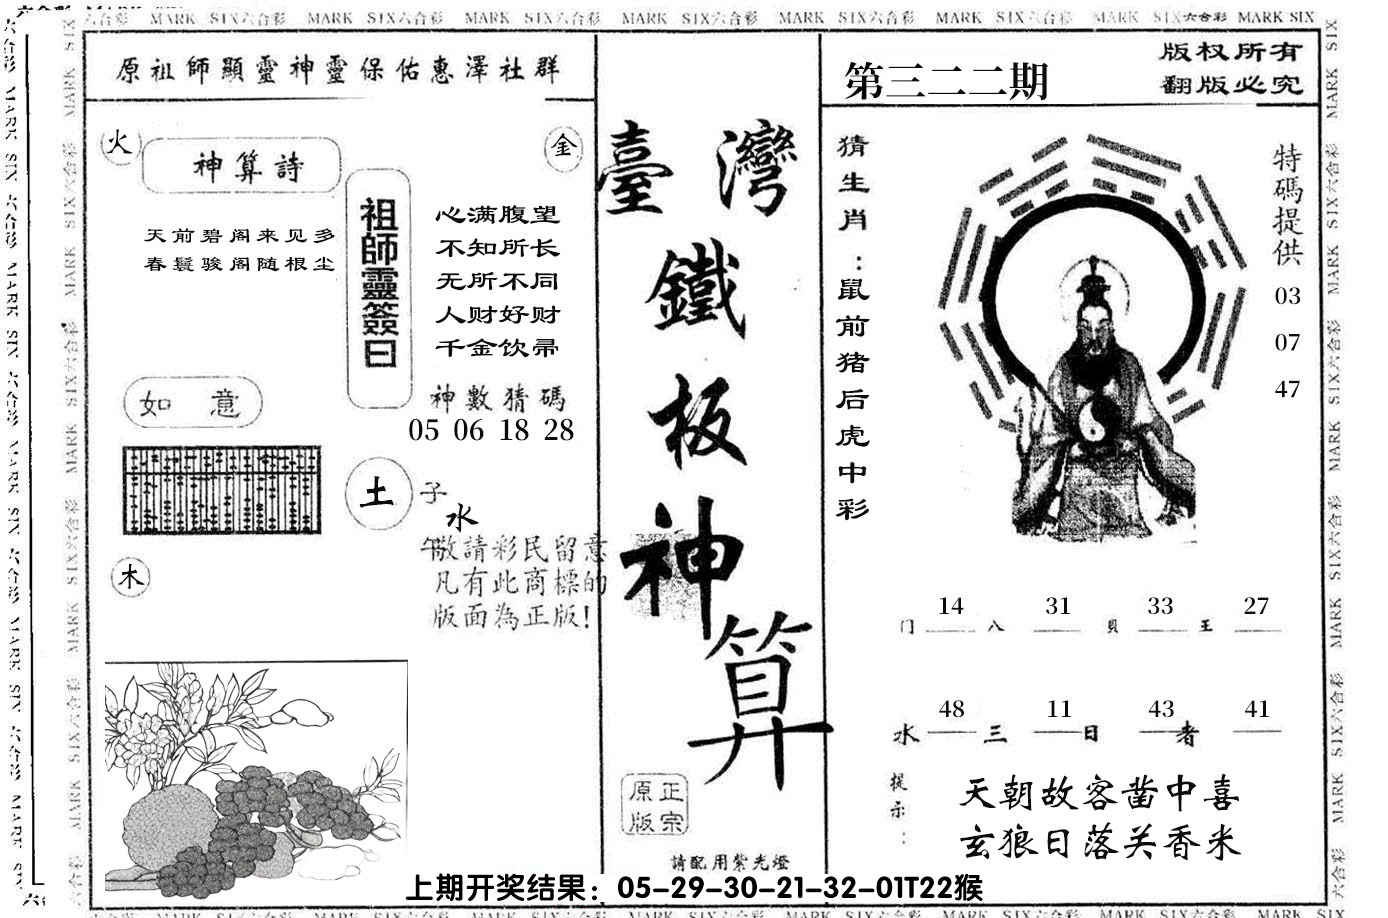 MARK SIX六合彩 MARK SIX六合彩 MARK SIX六合彩 MARK SIX六合彩 MARK SIX六合彩 MARK SIX六合彩 MARK SIX六合彩 MARK SIX
原祖師顯靈神靈保佑惠澤社群
火
金
神算詩
天前碧阁来见多
春鬟骏阁随根尘
祖師靈簽曰
心满腹望
不知所长
无所不同
人财好财
千金饮帚
神數猜碼
05 06 18 28
如意
土
子
水
午
木
敬請彩民留意
凡有此商標的
版面為正版!
臺灣
鐵
板
神
算
正宗
原版
請配用紫光燈
第三二二期
版权所有
翻版必究
猜生肖:鼠前猪后虎中彩
特碼提供
03
07
47
14 31 33 27
门 八 貝 王
48 11 43 41
水 三 日 者
提示:
天朝故客凿中喜
玄狼日落关香米
上期开奖结果：05-29-30-21-32-01T22猴